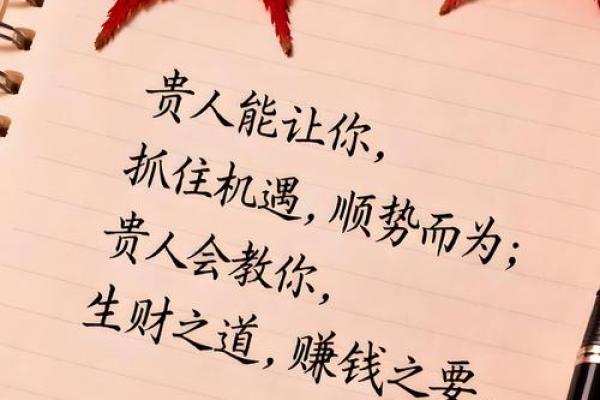 贵人能让你，
抓住机遇，顺势而为；
贵人会教你，
生财之道，赚钱之要